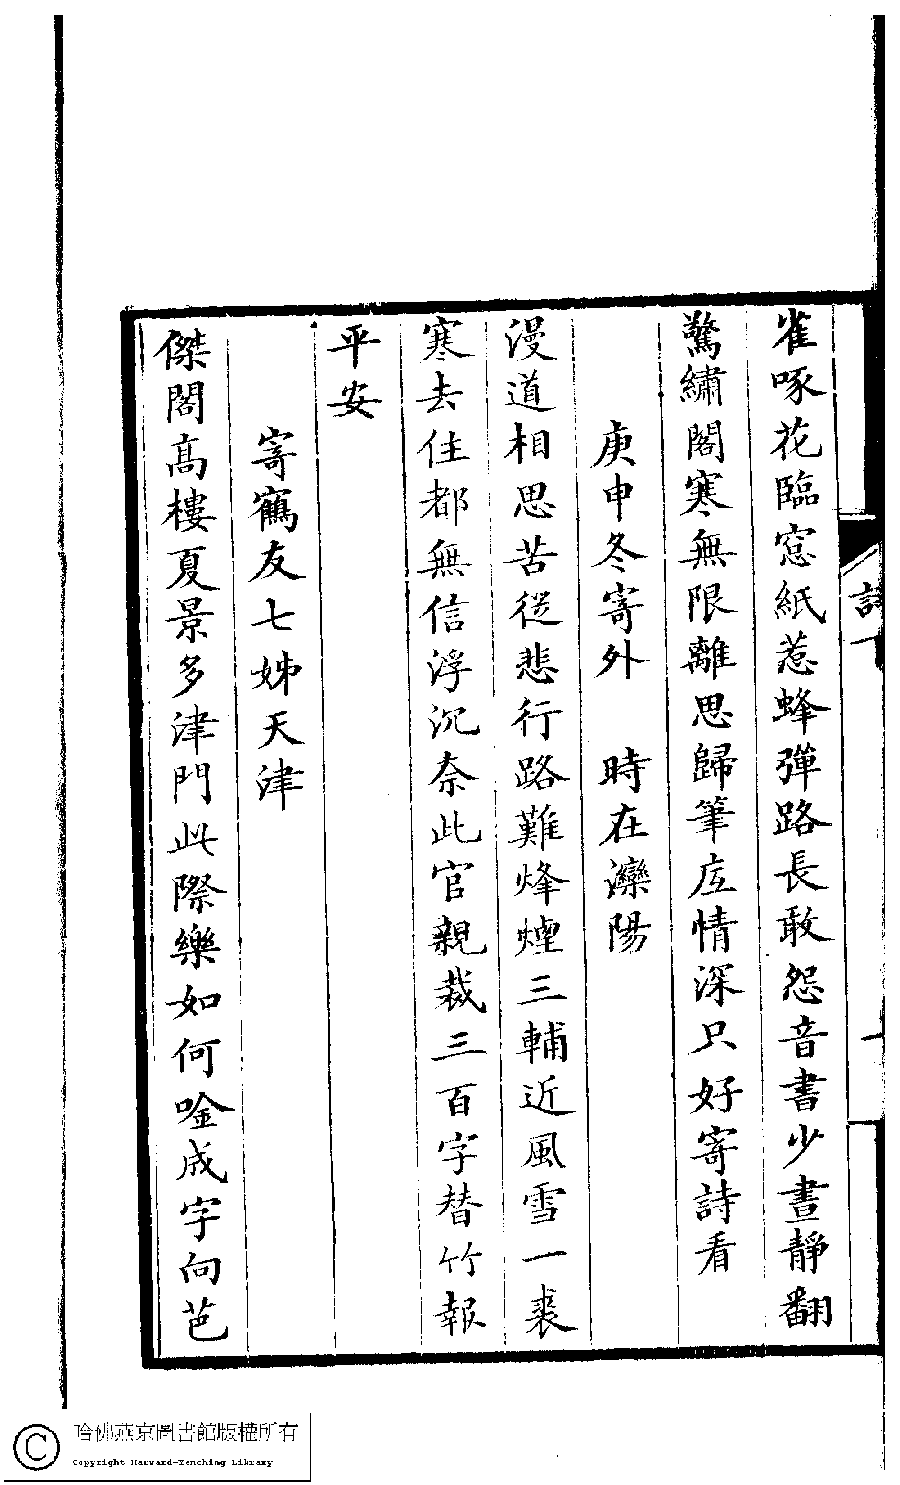 雀啄花臨窓紙惹蜂彈路長敢怨音書少晝靜翻
驚繡閣寒無限離思歸筆底情深只好寄詩看
庚申冬寄外　時在灤陽
漫道相思苦從悲行路難烽煙三輔近風雪一裘
寒去住都無信浮沉奈此官親裁三百字替竹報
平安
寄鶴友七姊天津
傑閣高樓夏景多津門此際樂如何唫成字向芭
哈佛燕京圖書館版權所有
Copyright Harvard-Yenching Library